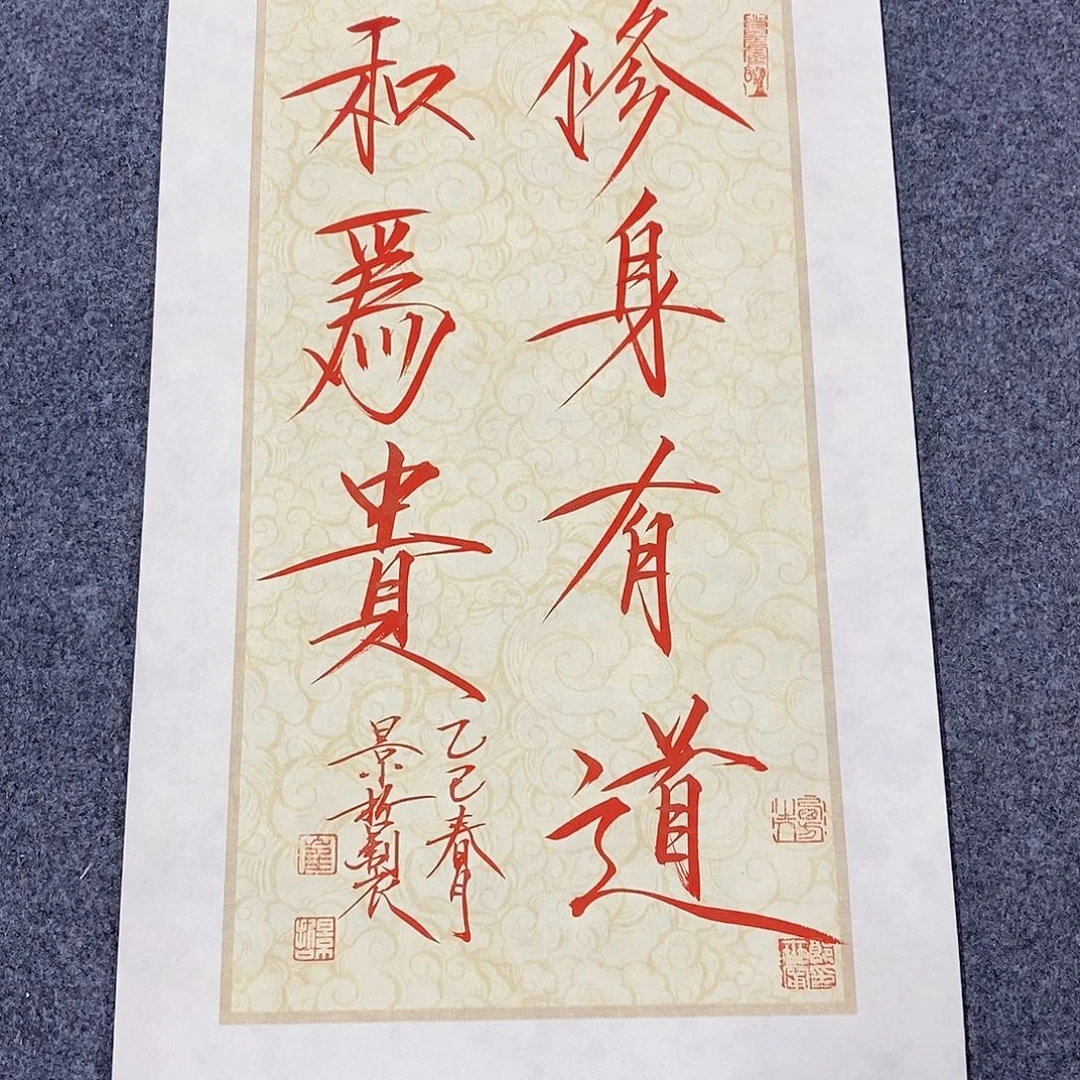 修身有道
和爲貴
乙巳春月
景哲製